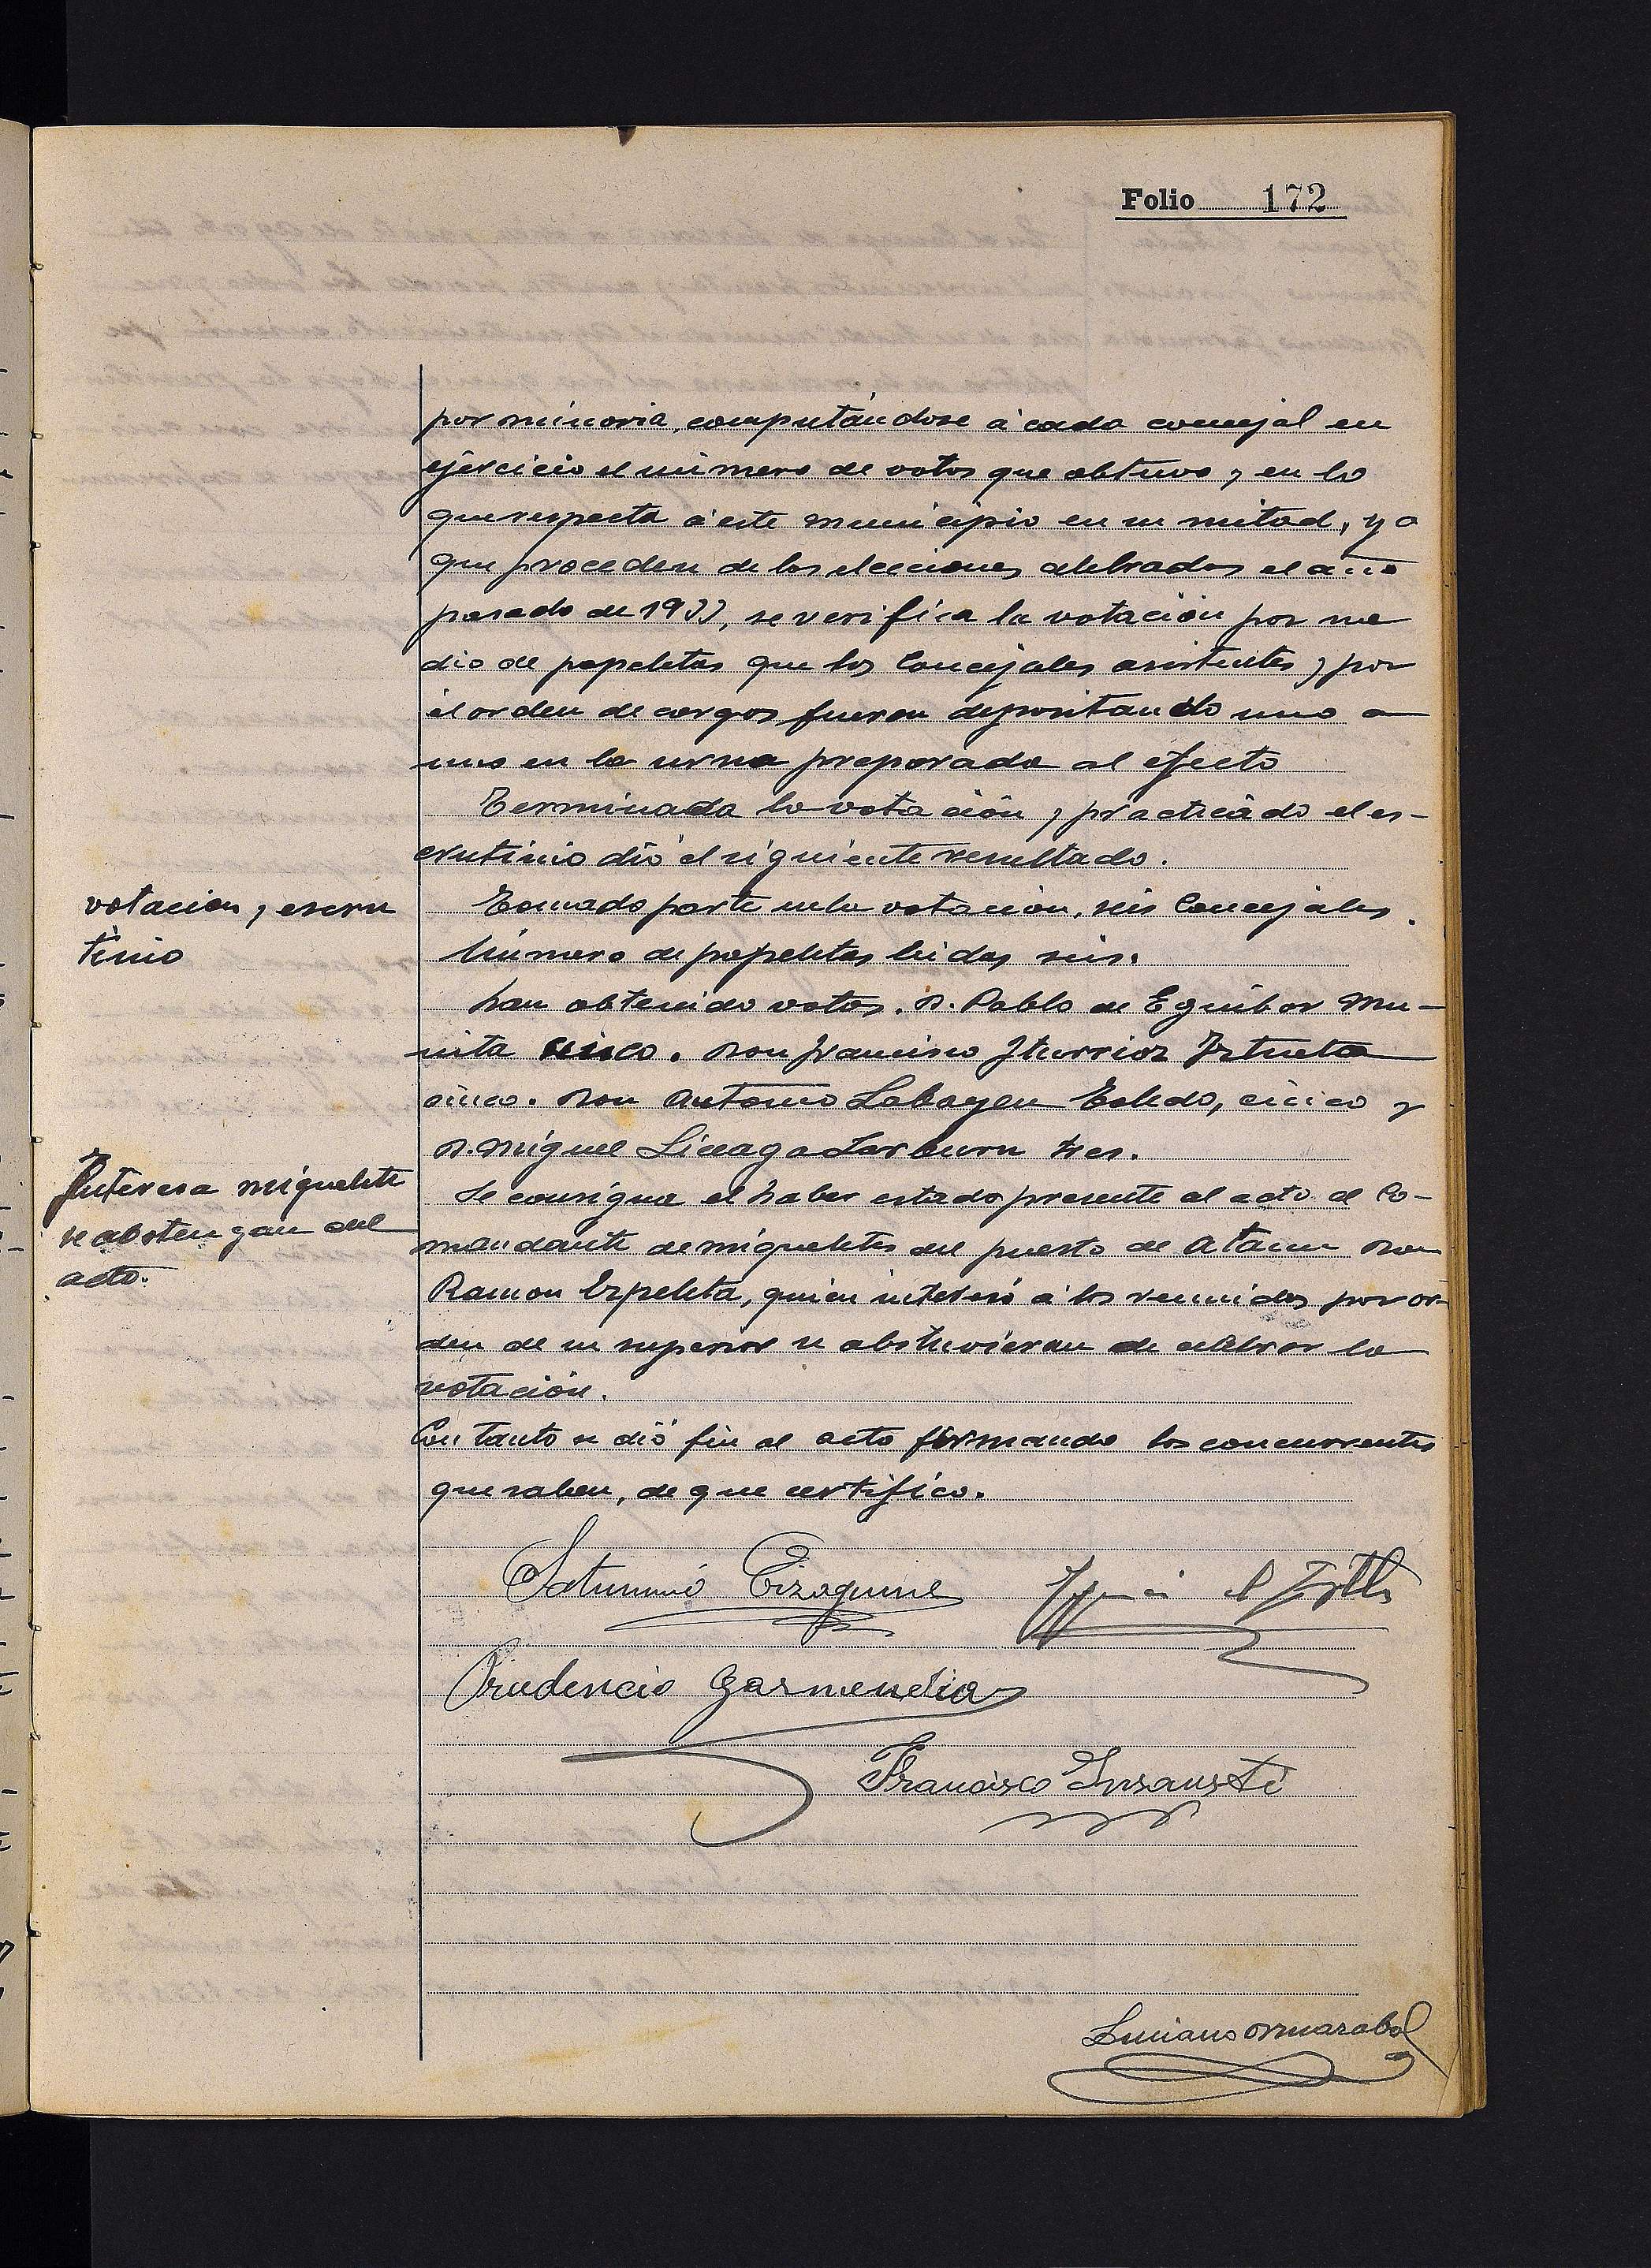 Folio 172
por minoria, computándose á cada concejal en
ejercicio el número de votos que obtuvo y en lo
que respecta á este municipio en su mitad, ya
que proceden de las elecciones celebradas el año
pasado de 1933, se verifica la votación por me
dio de papeletas que los Concejales asistentes y por
el orden de cargos fueron depositando uno a
uno en la urna preparada al efecto
Terminada la votación y practicado el es-
crutinio dió el siguiente resultado.
votacion y escru
tinio
Tomado parte en la votación, seis Concejales.
Número de papeletas leidas seis.
han obtenido votos. D. Pablo de Eguibar Mu-
nita cinco. Don Francisco Iturrioz Iztueta
cinco. Don Antonio Labayen Toledo, cinco y
D. Miguel Liceaga Larburu tres.
Interesa miquelete
se abstengan del
acto.
Se consigna el haber estado presente al acto el Co-
mandante de miqueletes del puesto de Ataun Don
Ramon Ezpeleta, quien interesó á los reunidos por or-
den de su superior se abstuvieran de celebrar la
votación.
Con tanto se dió fin al acto firmando los concurrentes
que saben, de que certifico.
Saturnino Eizaguirre
Prudencio Garmendia
Francisco Insausti
Luciano Ormazabal